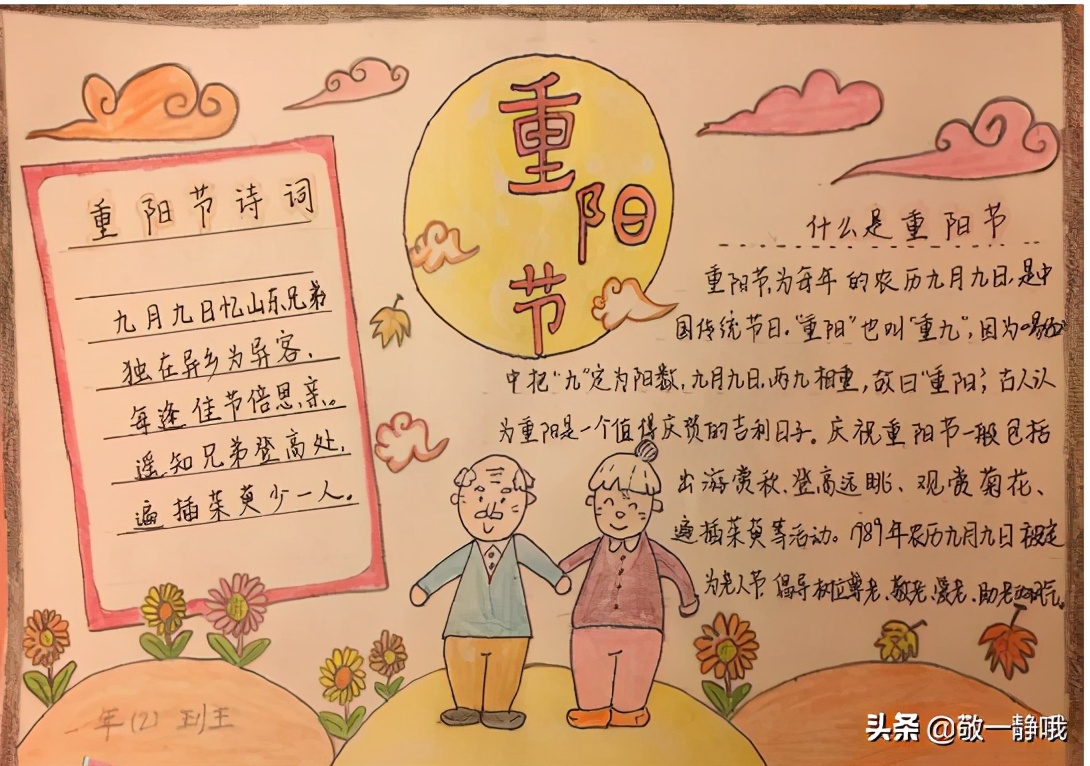 重阳节
重阳节诗词
九月九日忆山东兄弟
独在异乡为异客，
每逢佳节倍思亲。
遥知兄弟登高处，
遍插茱萸少一人。
什么是重阳节
重阳节，为每年的农历九月九日，是中
国传统节日。“重阳”也叫“重九”，因为《易经》
中把“九”定为阳数，九月九日，两九相重，故曰“重阳”；古人认
为重阳是一个值得庆贺的吉利日子。庆祝重阳节一般包括
出游赏秋、登高远眺、观赏菊花、
遍插茱萸等活动。1989年农历九月九日被定
为老人节，倡导树立尊老、敬老、爱老、助老的风气。
一年(2)班王
头条 @敬一静哦